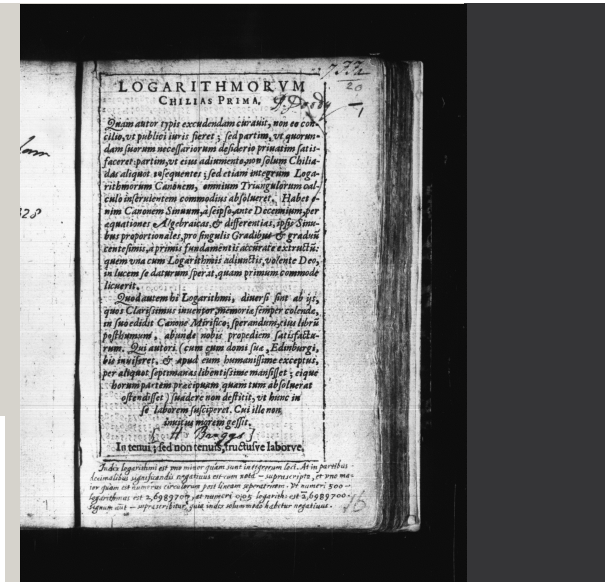 LOGARITHMORVM
CHILIAS PRIMA.
Quam autor typis excudendam curauit, non eo con-
cilio, vt publici iuris fieret; sed partim, vt quorun-
dam suorum necessariorum desiderio priuatim satis-
faceret: partim, vt eius adiumento, non solum Chilia-
das aliquot insequentes; sed etiam integrum Loga-
rithmorum Canonem, omnium Triangulorum cal-
culo inseruientem commodius absolueret. Habet e-
nim Canonem Sinuum, à seipso, ante Decennium, per
æquationes Algebraicas, & differentias, ipsis Sinu-
bus proportionales, pro singulis Gradibus & graduū
centesimis, a primis fundamentis accurate extructū:
quem vna cum Logarithmis adiunctis, volente Deo,
in lucem se daturum sperat, quam primum commode
licuerit.
Quod autem hi Logarithmi, diuersi sint ab ijs,
quos Clarissimus inuentor, memoriæ semper colendæ,
in suo edidit Canone Mirifico; sperandum, eius librū
posthumum, abunde nobis propediem satisfactu-
rum. Qui autori (cum eum domi suæ, Edinburgi,
bis inuiseret, & apud eum humanissime exceptus,
per aliquot septimanas libentissime mansisset; eique
horum partem præcipuam quam tum absoluerat
ostendisset) suadere non destitit, vt hunc in
se laborem susciperet. Cui ille non
inuitus morem gessit.
[H Briggs]
In tenui; sed non tenuis, fructusve laborve.
Index logarithmi est vno minor quàm sunt integrorum loci. At in partibus
decimalibus significandis negatiuus est cum nota – suprascripta, et vno ma-
ior quàm est numerus circulorum post lineam
logarithmus est 2,6989700, at numeri
signum – suprascribitur, quia index solummodo habetur negatiuus.
16